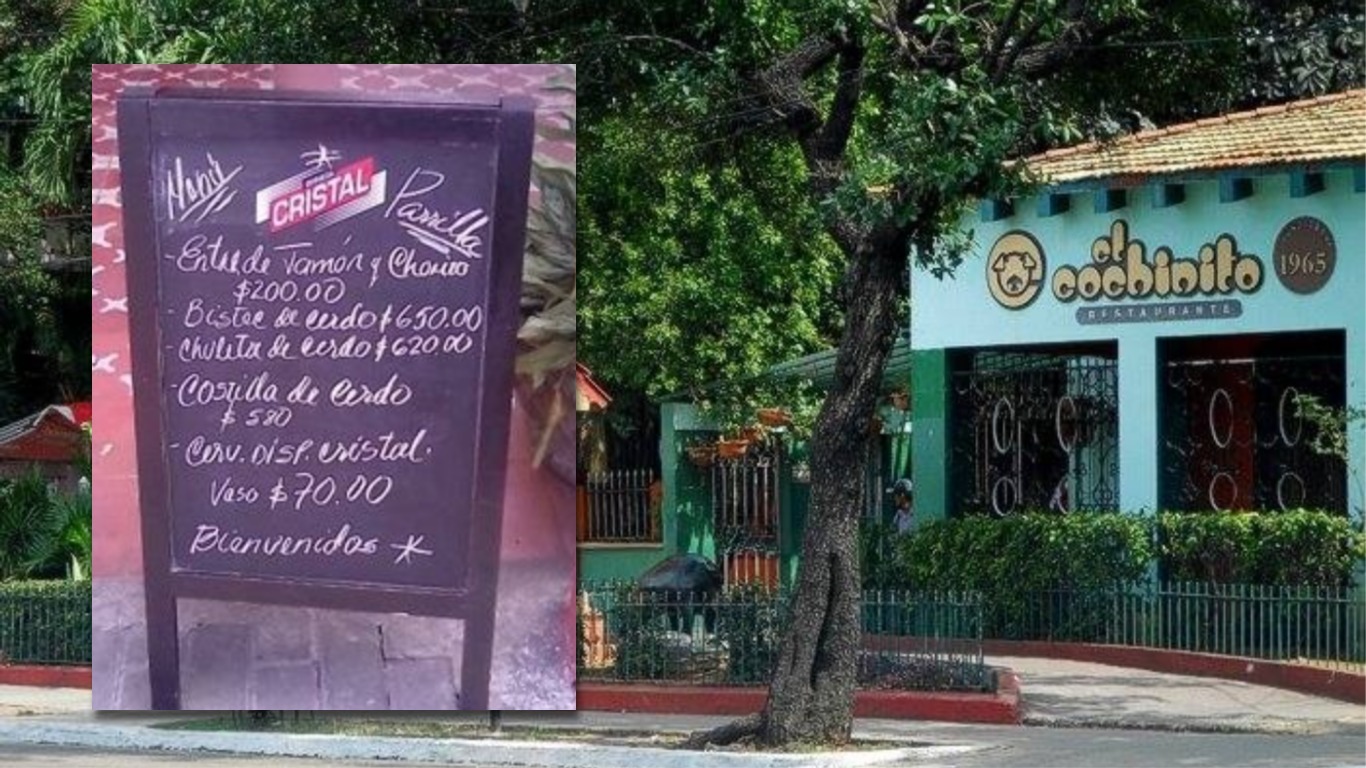 Menú
CERVEZA
CRISTAL
Parrilla
- Entre de Jamón y Chorizo
$200.00
- Bistec de Cerdo $650.00
- Chuleta de Cerdo $620.00
- Costilla de Cerdo
$580
- Cerv. Disp. cristal.
Vaso $70.00
Bienvenidos
el
cochinito
RESTAURANTE
1965